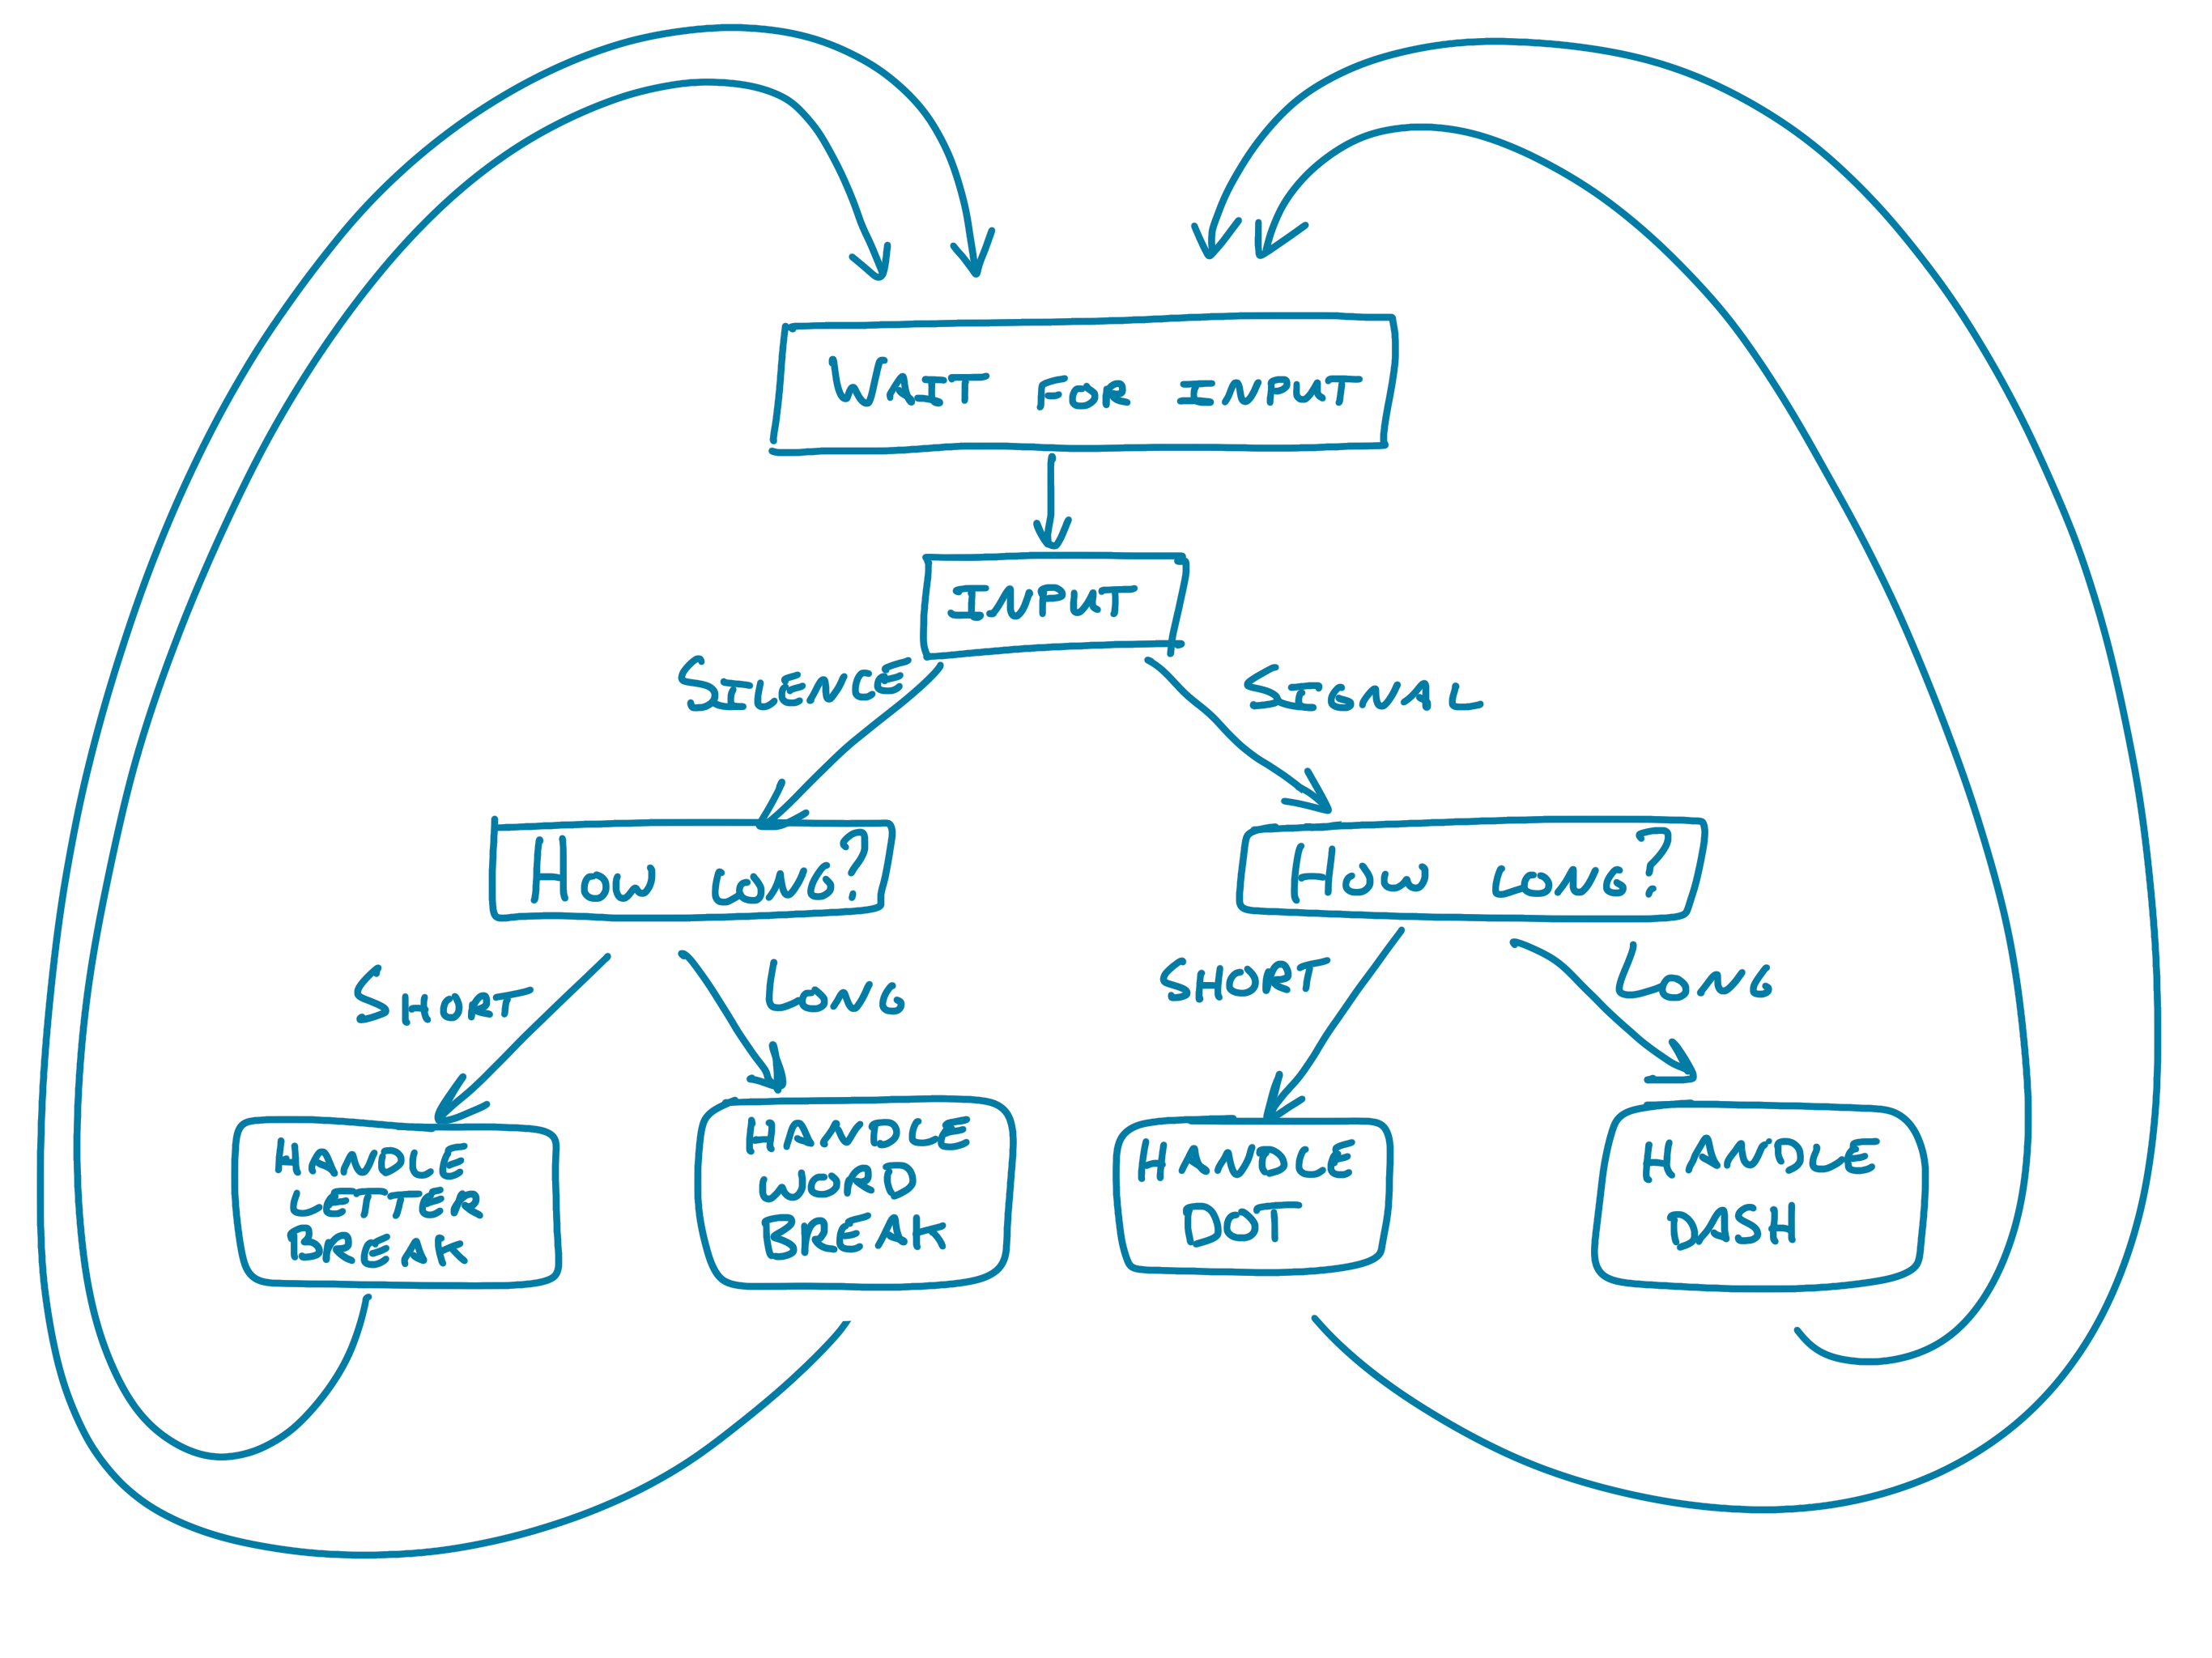 WAIT FOR INPUT
INPUT
SILENCE
SIGNAL
HOW LONG?
HOW LONG?
SHORT
LONG
SHORT
LONG
HANDLE
LETTER
BREAK
HANDLE
WORD
BREAK
HANDLE
DOT
HANDLE
DASH